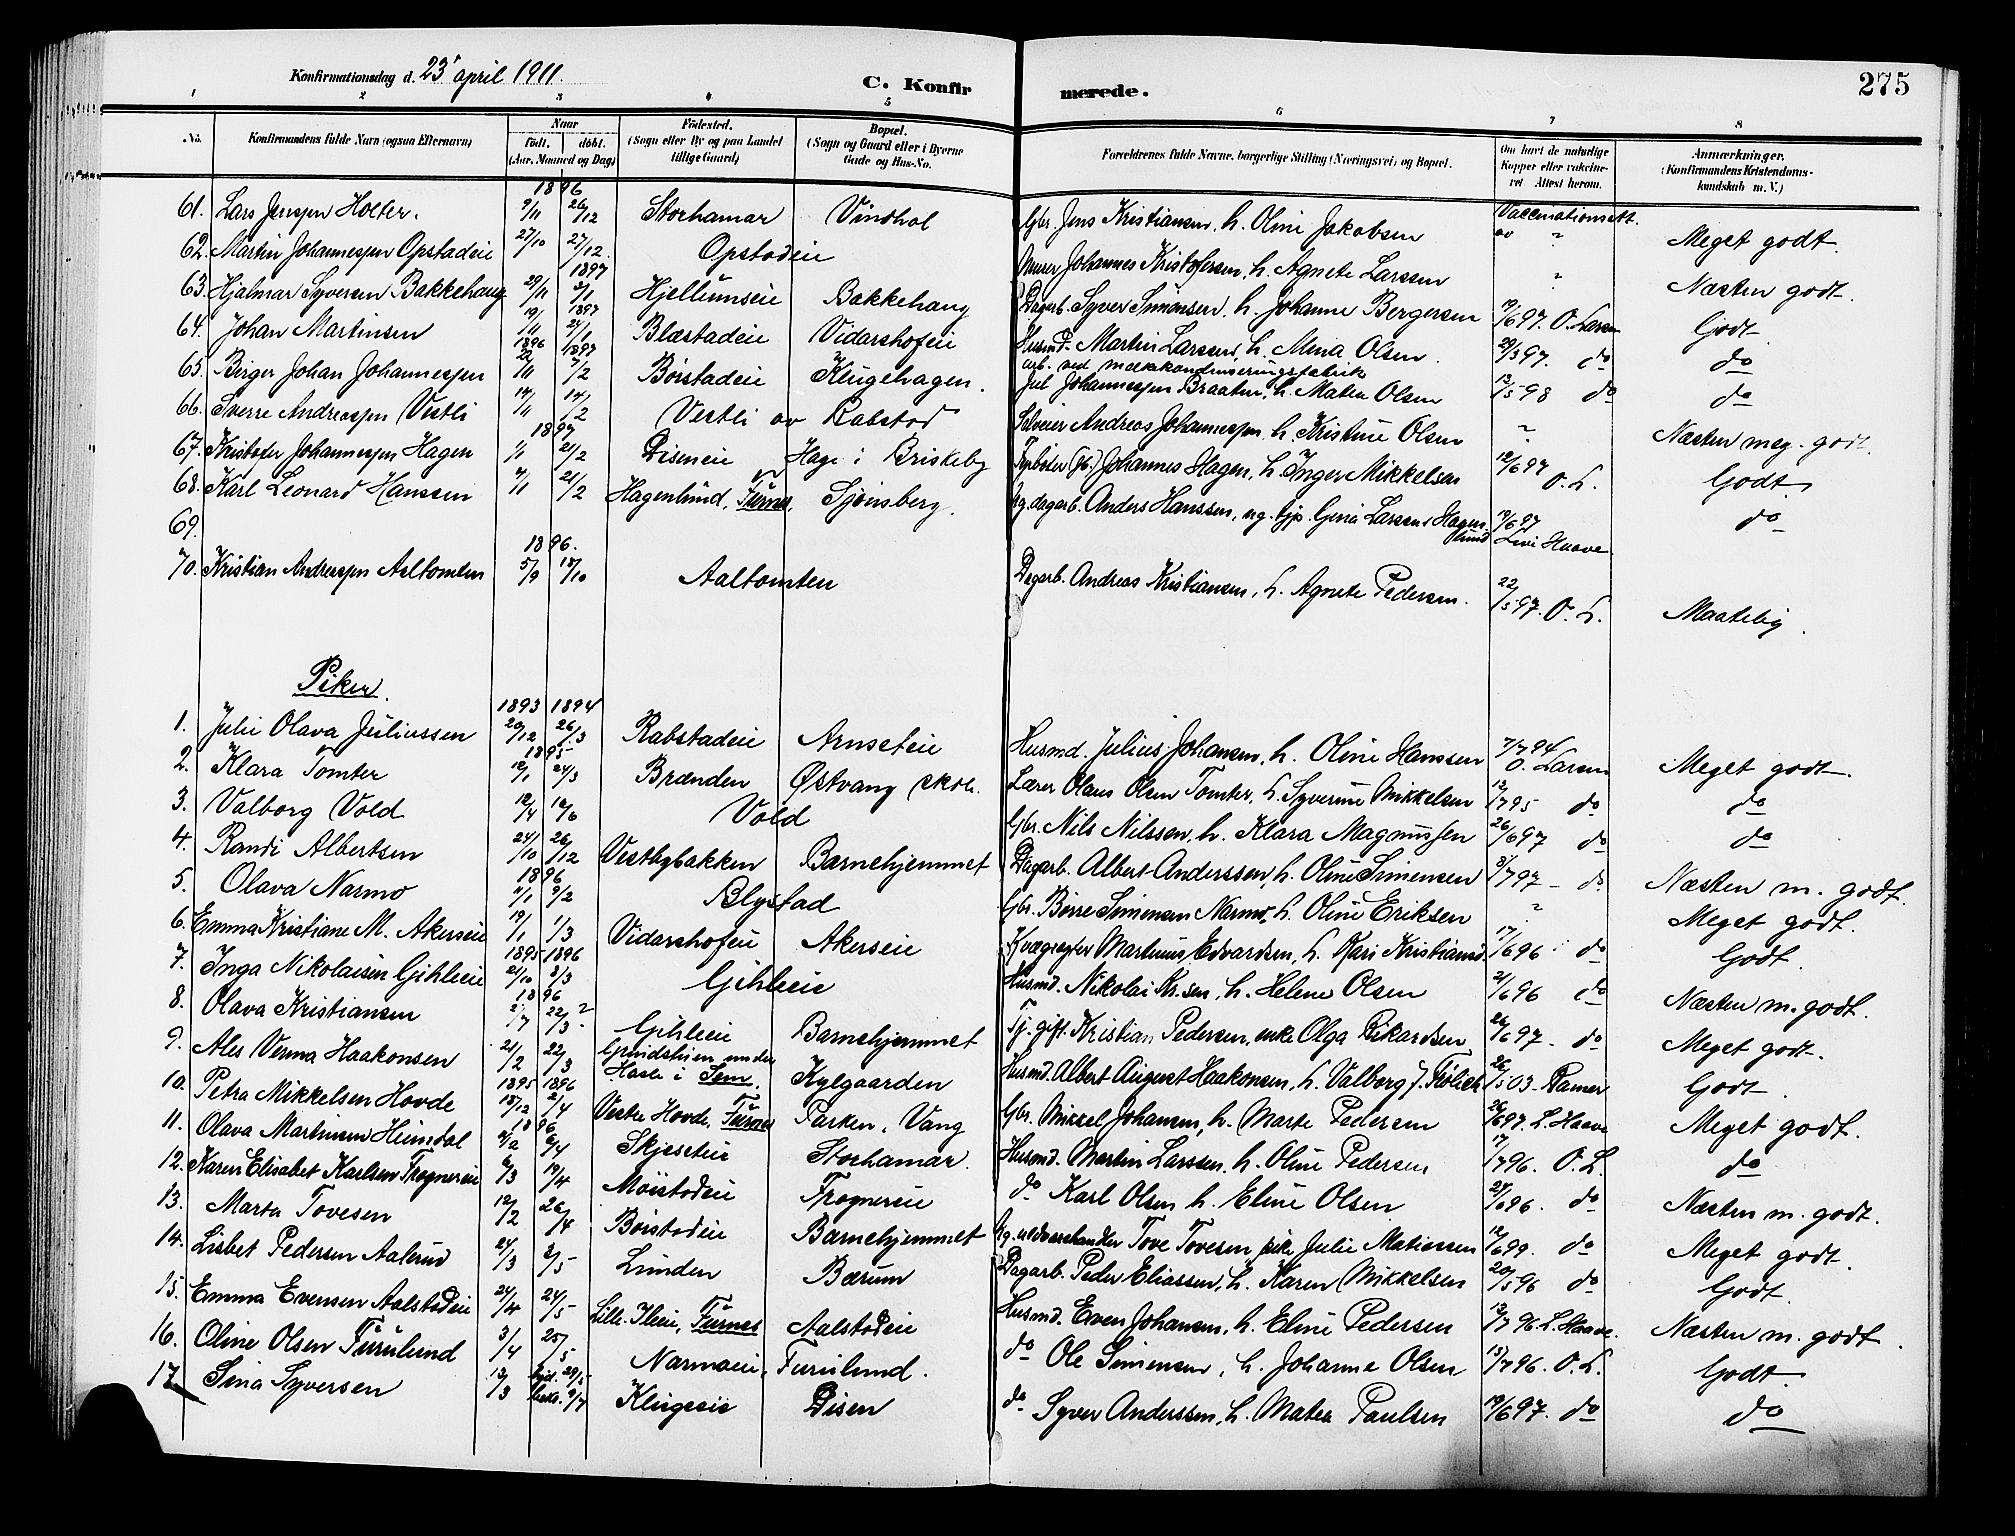 Konfirmationsdag d. 23' april 1911.
C. Konfirmerede.
275
1 2 3 4 5 6 7 8
No. Konfirmandens fulde Navn (ogsaa Efternavn) Naar født. døbt. (Aar, Maaned og Dag) Fødested. (Sogn eller By og paa Landet tillige Gaard) Bopæl. (Sogn og Gaard eller i Byerne Gade og Hus-No. Forældrenes fulde Navne, borgerlige Stilling (Næringsvei) og Bopæl. Om havt de naturlige Kopper eller vaccineret Attest herom. Anmærkninger. (Konfirmandens Kristendomskundskab m. V.)
1896
61. Lars Jenssen Holter. 9/11 26/12 Storhamar Vindhol Gbr. Jens Kristiansen, h. Olini Jakobsen Vaccinationsatt. Meget godt.
62. Martin Johannessen Opstadeie 27/10 27/12 Opstadeie Murer Johannes Kristofersen, h. Agnete Larssen " Næsten godt.
1897
63. Hjalmar Syversen Bakkehaug 29/11 2/1 Hjellumseie Bakkehaug Dagarb. Syver Simonsen, h. Johanne Bergersen 19/6 97. O. Larsen Godt.
1897
64. Johan Martinsen 19/11 24/1 Blæstadeie Vidarshofeie Husmd. Martin Larssen, h. Mina Olsen. 29/3 97. do do
1896 1897
65. Birger Johan Johannessen 22/11 2/2 Børstadeie Klugehagen. arb. ved mælkekondenseringsfabrik Jul Johannessen Braaten, h. Matea Olsen 12/5 98 do do
66. Sverre Andreassen Vestli 14/11 14/2 Vestli av Rabstad Selveier Andreas Johannessen, h. Kristine Olsen " Næsten meg. godt.
1897
67. Kristofer Johannessen Hagen 1/1 21/2 Diseneie Hage i Briskeby Fyrbøter (jb.) Johannes Hagen, h. Inger Mikkelsen 12/6 97 O. L. Godt.
68. Karl Leonard Hanssen 4/1 21/2 Hagenlund, Furnes, Sjønsberg. ug. dagarb. Anders Hanssen, ug. tjp. Gina Larssen Hagenlund 19/6 97 Levi Haave do
69.
1896.
70. Kristian Andreassen Aaltomten 5/9 18/10 Aaltomten Dagarb. Andreas Kristiansen, h. Agnete Pedersen. 22/5 97. O. L. Maatelig.
Piker.
1893 1894
1. Julie Olava Juliussen 20/12 26/3 Rabstadeie Arnseteie Husmd. Julius Johansen, h. Oline Hanssen 7/7 94 O. Larsen Meget godt.
1895
2. Klara Tomter 12/1 24/3 Brænden Østvang skole. Lærer Olaus Olsen Tomter, h. Syverine Mikkelsen 12/7 95 do do
3. Valborg Vold 12/4 16/6 Vold Gbr. Nils Nilssen, h. Klara Magnussen 26/6 97 do do
4. Randi Albertsen 24/10 26/12 Vestbybakken Barnehjemmet Dagarb. Albert Anderssen, h. Oline Simensen 3/7 97 - do Næsten m. godt.
1896
5. Olava Narmo 4/1 9/2 Blystad Gbr. Børre Simensen Narmo, h. Oline Eriksen " Meget godt.
6. Emma Kristiane M. Akerseie 19/1 1/3 Vidarshofeie Akerseie Kvægrøgter Martinius Edvardsen, h. Kari Kristiansd. 17/6 96 do Godt.
1895 1896
7. Inga Nikolaisen Gihleeie 21/10 8/3 Gihleeie Husmd. Nikolai Kr.sen, h. Helene Olsen 21/6 96 do Næsten m. godt.
1896
8. Olava Kristiansen 2/7 22/3 ? Gihleeie Barnehjemmet Tj. gift. Kristian Pedersen, enke Olga Rikardsen 26/6 97 - do Meget godt.
9. Ales Verma Haakonsen 21/2 22/3 Grindstuen under Hasle i Sem. Kylgaarden Husmd. Albert August Haakonsen, h. Valborg J. Frölich 26/5 03 - Ramer Godt.
1895 1896
10. Petra Mikkelsen Hovde 18/12 2/4 Vestre Hovde, Furnes Parken, Vang Gbr. Mikkel Johansen, h. Marte Pedersen 26/6 97. L. Haave Meget godt.
1896
11. Olava Martinsen Heimdal 4/2 6/4 Skjeseteie Storhamar. Husmd. Martin Larssen, h. Oline Pedersen 17/7 96. O. L. do
12. Karen Elisabet Karlsen Frognereie 6/3 19/4 Møistadeie Frognereie do Karl Olsen h. Eline Olsen 27/6 96. do Næsten m. godt.
13. Marta Tovesen 12/2 26/4 Børstadeie Barnehjemmet Ug. uldvarehandler Tove Tovesen, pike Julie Matiassen 12/6 99. do Meget godt.
14. Lisbet Pedersen Aalerud 24/3 3/5 Lunden Bærum Dagarb. Peder Eliassen, h. Karen Mikkelsen 20/5 96 do Godt.
15. Emma Evensen Aalstadeie 24/4 24/5 Lille-Ileie, Furnes Aalstadeie Husmd. Even Johansen, h. Eline Pedersen 13/7 96. L. Haave. Næsten m. godt.
16. Oline Olsen Furulund 3/4 25/5 Narmoeie, Furulund. do Ole Simensen, h. Johanne Olsen 13/7 96. O. L. Godt.
17. Sina Syversen 13/3 hjd. 29/5 bekr. 9/7 Klugeeie Disen do Syver Anderssen, h. Matea Paulsen 19/6 97. do do